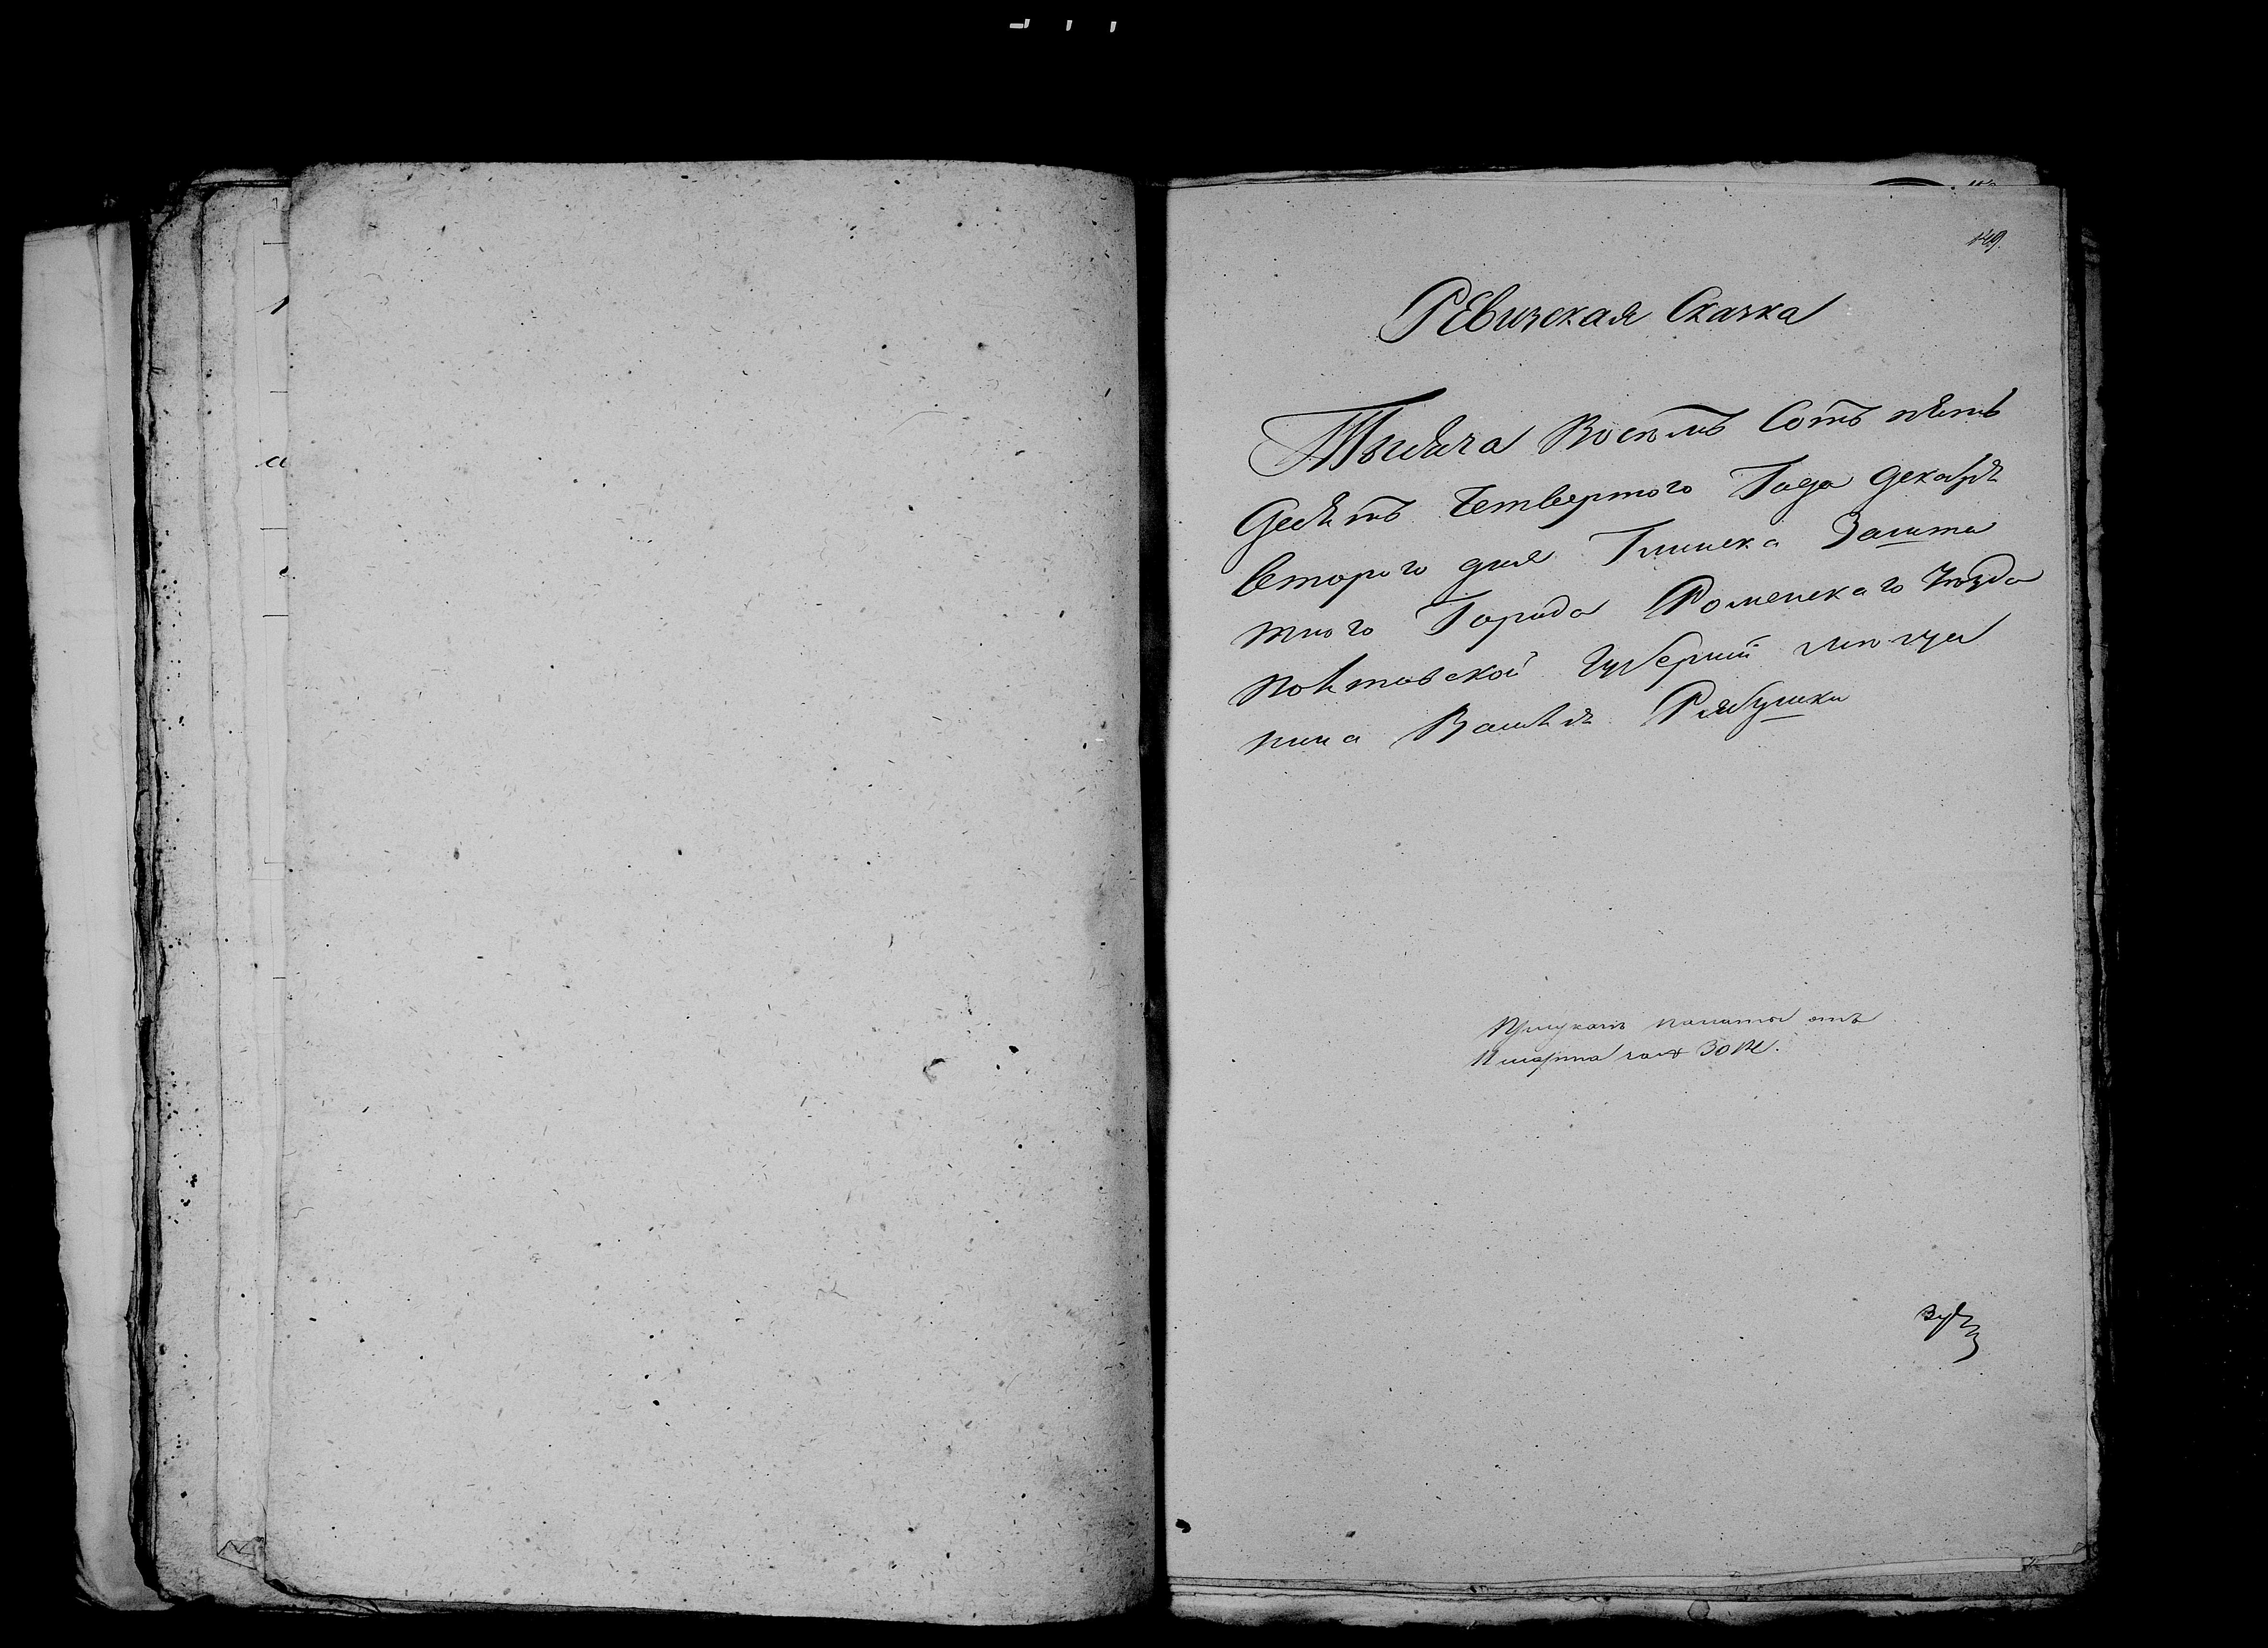 149.
Ревизская Сказка
Тысяча Восемь Сотъ пять
десятъ Четвертого Года декабря
второго дня Глинска Зашта
тного Города Роменского Уезда
полтавской Губерніи мѣща
нина Василя Рябушки
палаты отъ
марта 30